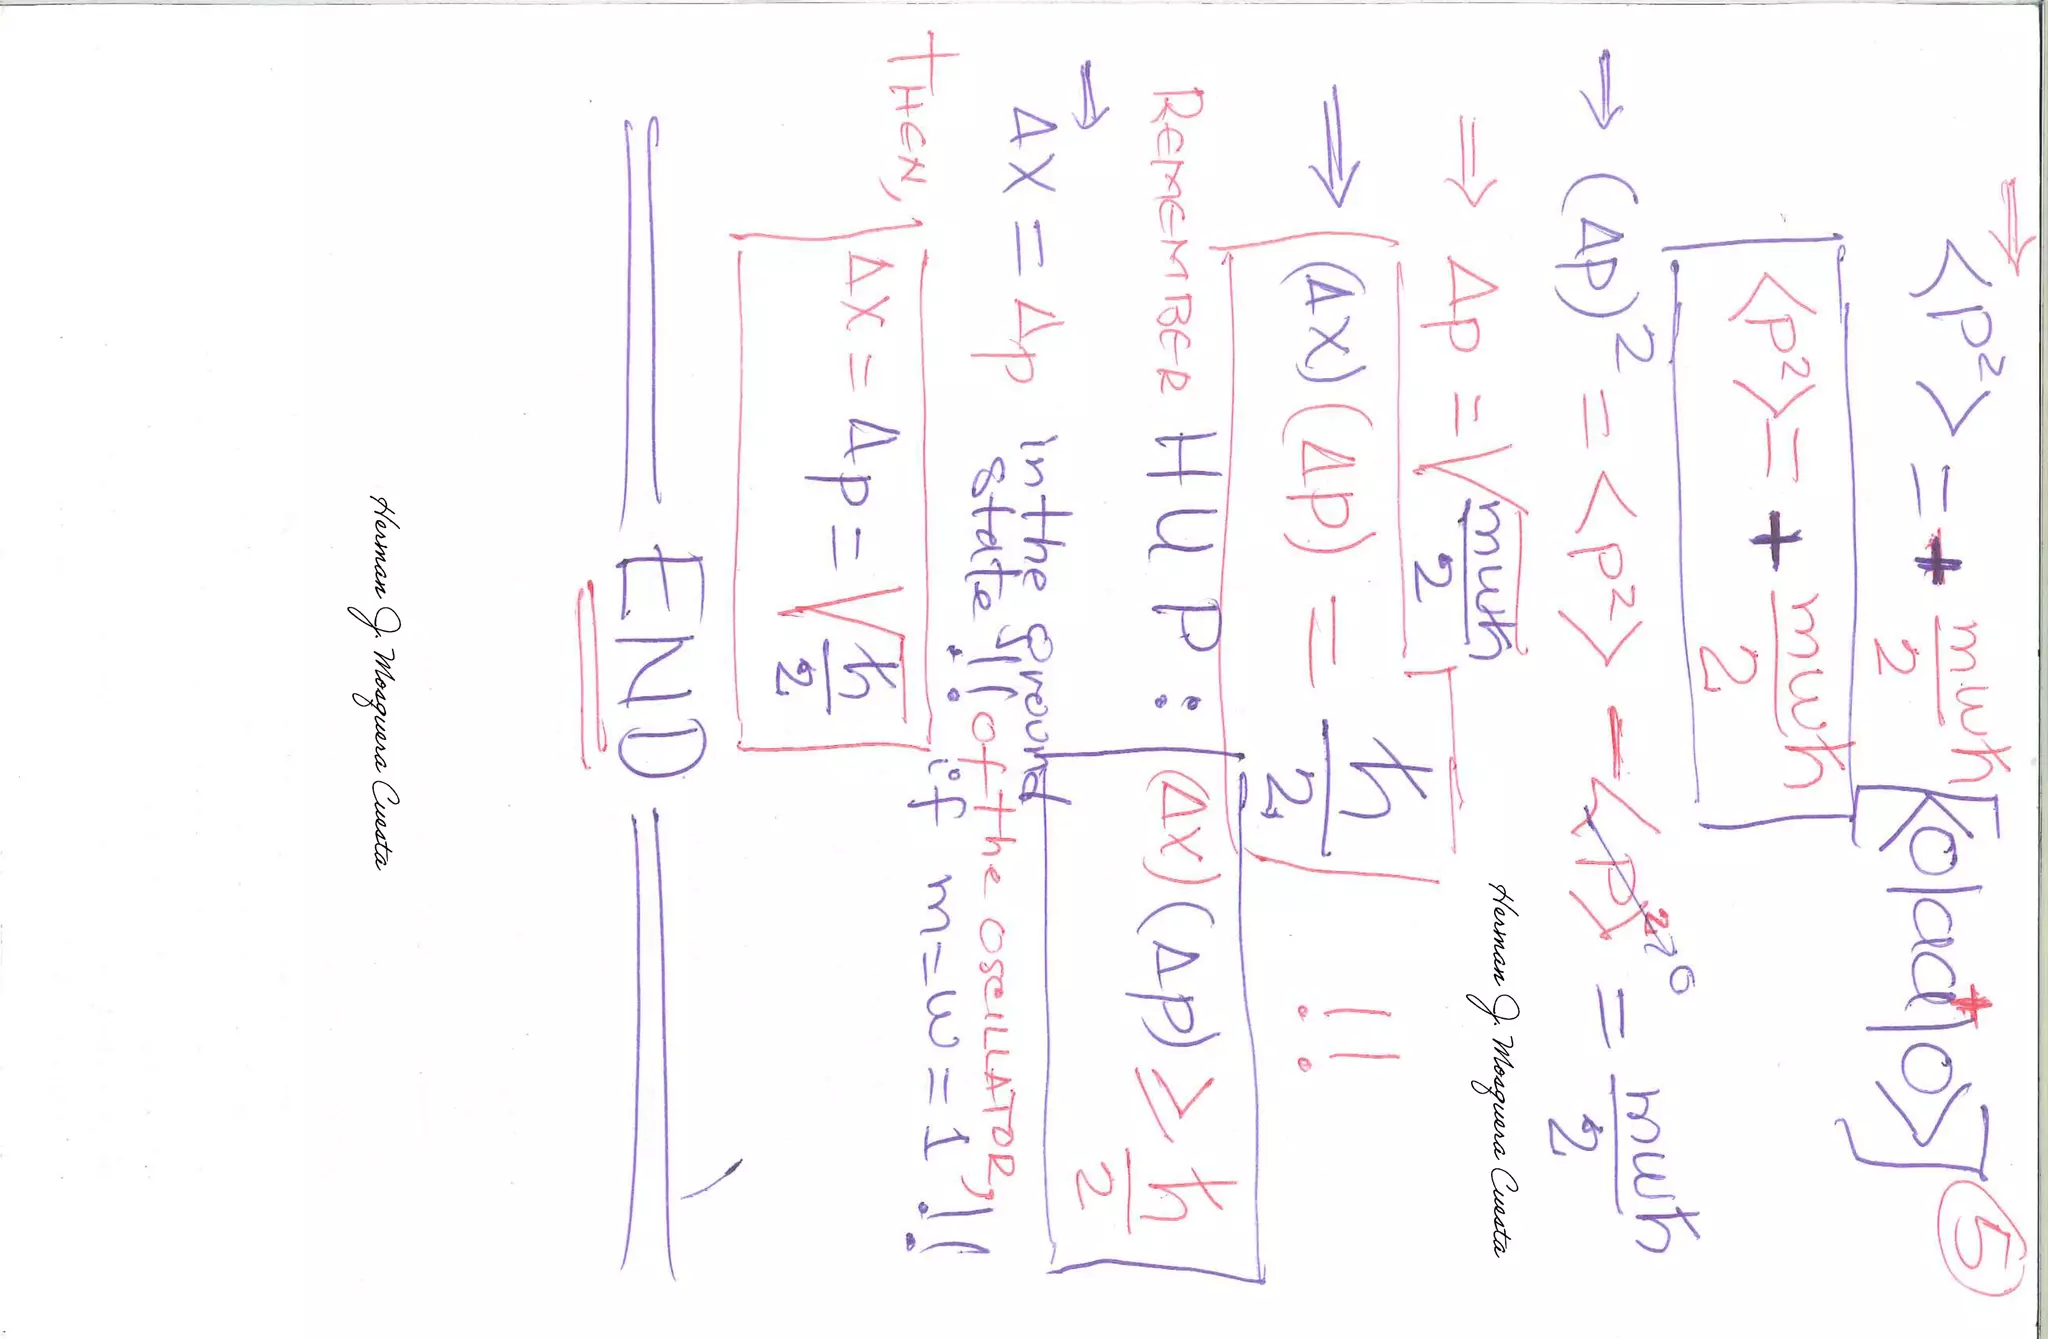 ⇒ <p²> = + mωħ/2 [<0|aa†|0>] ⑤
<p²> = + mωħ/2
⇒ (Δp)² = <p²> - <p>²↗0 = mωħ/2
⇒ Δp = √(mωħ/2)
⇒ (Δx)(Δp) = ħ/2 !!
REMEMBER HUP: (Δx)(Δp) ≥ ħ/2
⇒ Δx = Δp in the ground
state!! of the OSCILLATOR,!!
if m=ω=1
THEN, Δx = Δp = √(ħ/2)
END
Herman J. Mosquera Cuesta
Herman J. Mosquera Cuesta